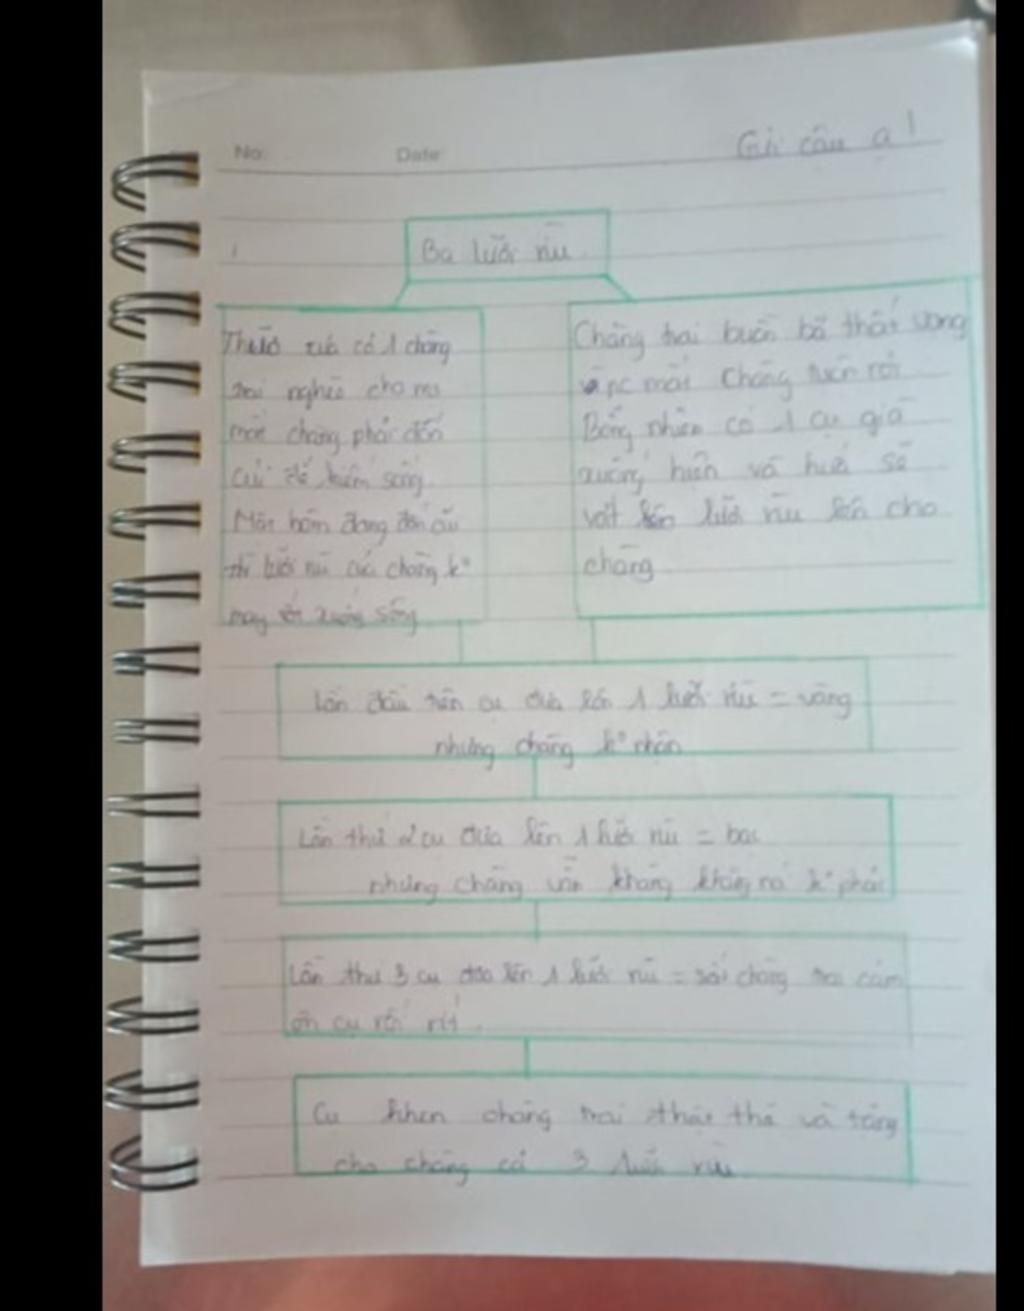 No:
Date:
Gửi cậu ạ!
Ba lưỡi rìu
Thuở xưa có 1 chàng
trai nghèo cha mẹ
mất chàng phải đốn
củi để kiếm sống
Một hôm đang đốn củi
thì lưỡi rìu của chàng k°
may rơi xuống sông
Chàng trai buồn bã thất vọng
mặt chàng
Bỗng nhiên có 1 cụ già
xuống hiện và hứa sẽ
vớt lưỡi rìu lên cho
chàng
Lần đầu tiên cụ đưa lên 1 lưỡi rìu = vàng
nhưng chàng k° nhận
Lần thứ 2 cụ đưa lên 1 lưỡi rìu = bạc
nhưng chàng vẫn không k° phải
Lần thứ 3 cụ đưa lên 1 lưỡi rìu = sắt chàng trai cảm
ơn cụ rối rít.
Cụ khen chàng trai thật thà và tặng
cho chàng cả 3 lưỡi rìu